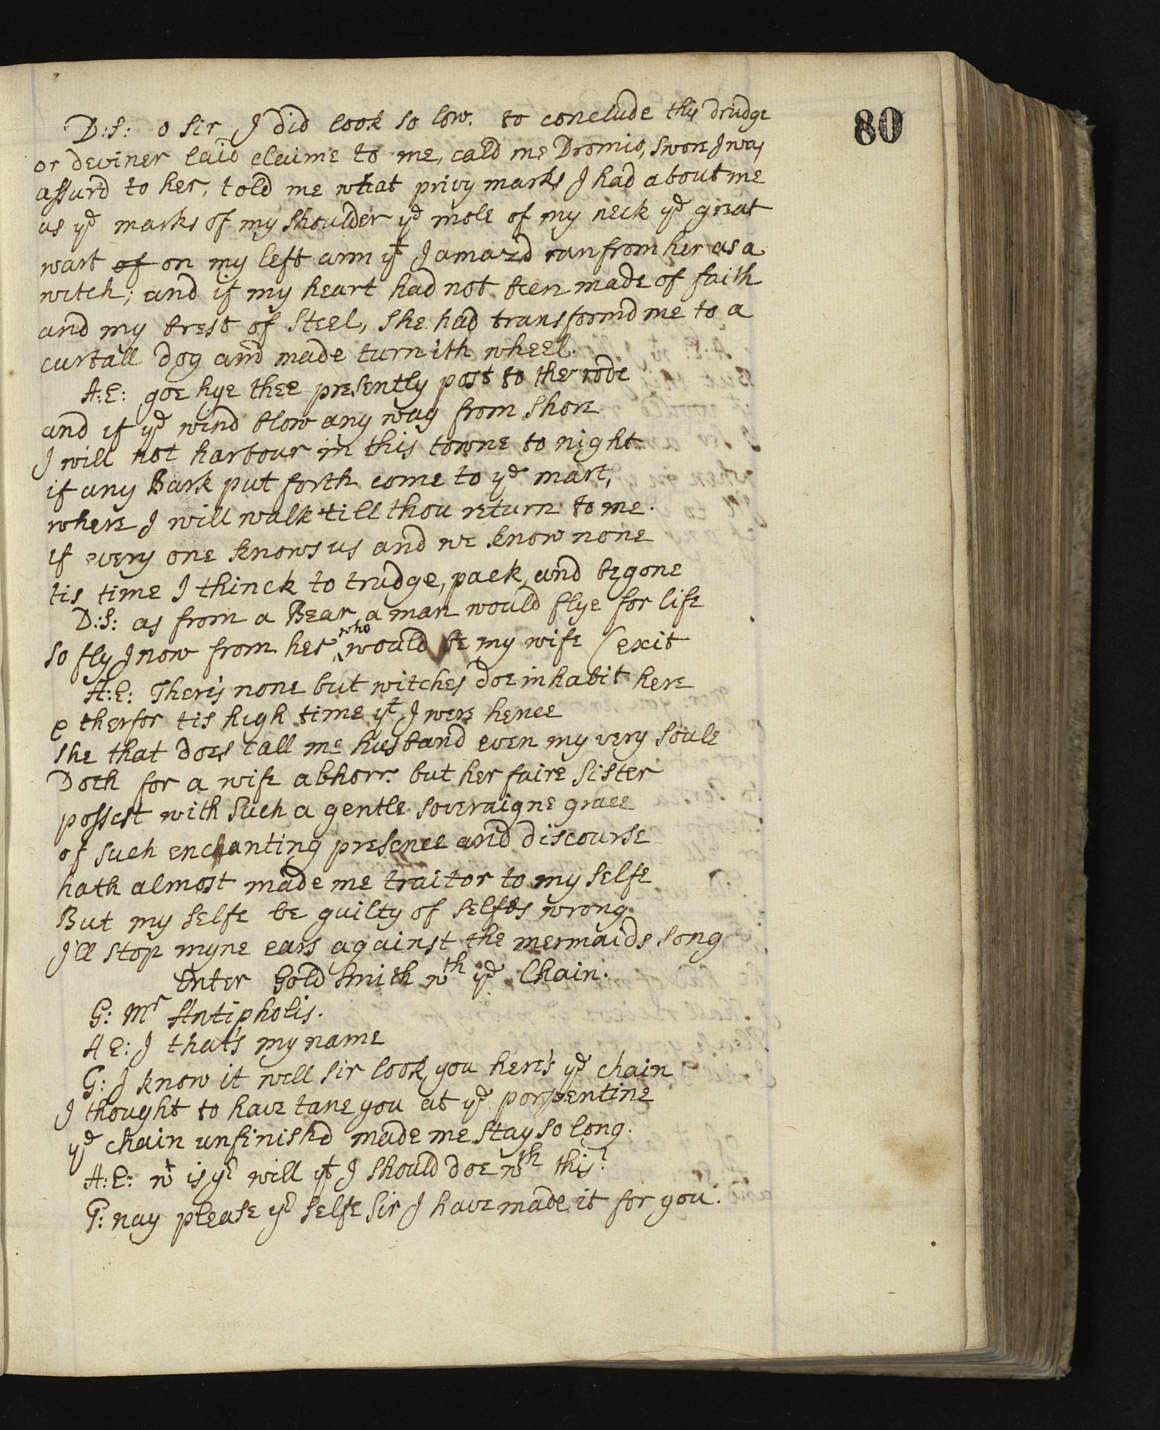 80
D:S: o sir I did look so low. to conclude this drudge
or deviner laid claime to me, cald me Dromio, swore I was
assurd to her, told me what privy marks I had about me
as yᵉ marks of my shoulder yᵉ mole of my neck yᵉ great
wart of on my left arm yᵗ I amazd ran from her as a
witch; and if my heart had not been made of faith
and my brest of steel, she had transformd me to a
curtall dog and made turn ith wheel.
A:E: goe hye thee presently post to the rode
and if yᵉ wind blow any way from shore
I will not harbour in this towne to night
if any Bark put forth come to yᵉ mart,
where I will walk till thou return to me.
if every one knows us and we know none
tis time I thinck to trudge, pack, and begone
D:S: as from a Bear a man would flye for life
so fly I now from her who would be my wife (exit
A:E: There's none but witches doe inhabit here
& therfor tis high time yᵗ I were hence
she that does call me husband even my very soule
Doth for a wife abhorr. but her faire sister
possest with such a gentle soveraigne grace
of such enchanting presence and discourse
hath almost made me traitor to my selfe
But my selfe be guilty of selfes wrong.
I'll stop myne ears against the mermaids song
Enter Gold smith wᵗʰ yᵉ Chain.
G: Mʳ Antipholis.
A E: I that's my name
G: I know it well sir look you here's yᵉ chain
I thought to have tane you at yᵉ porpentine
yᵉ chain unfinishd made me stay so long.
A:E: wᵗ is yʳ will yᵗ I should doe wᵗʰ this?
G: nay please yʳ selfe sir I have made it for you.